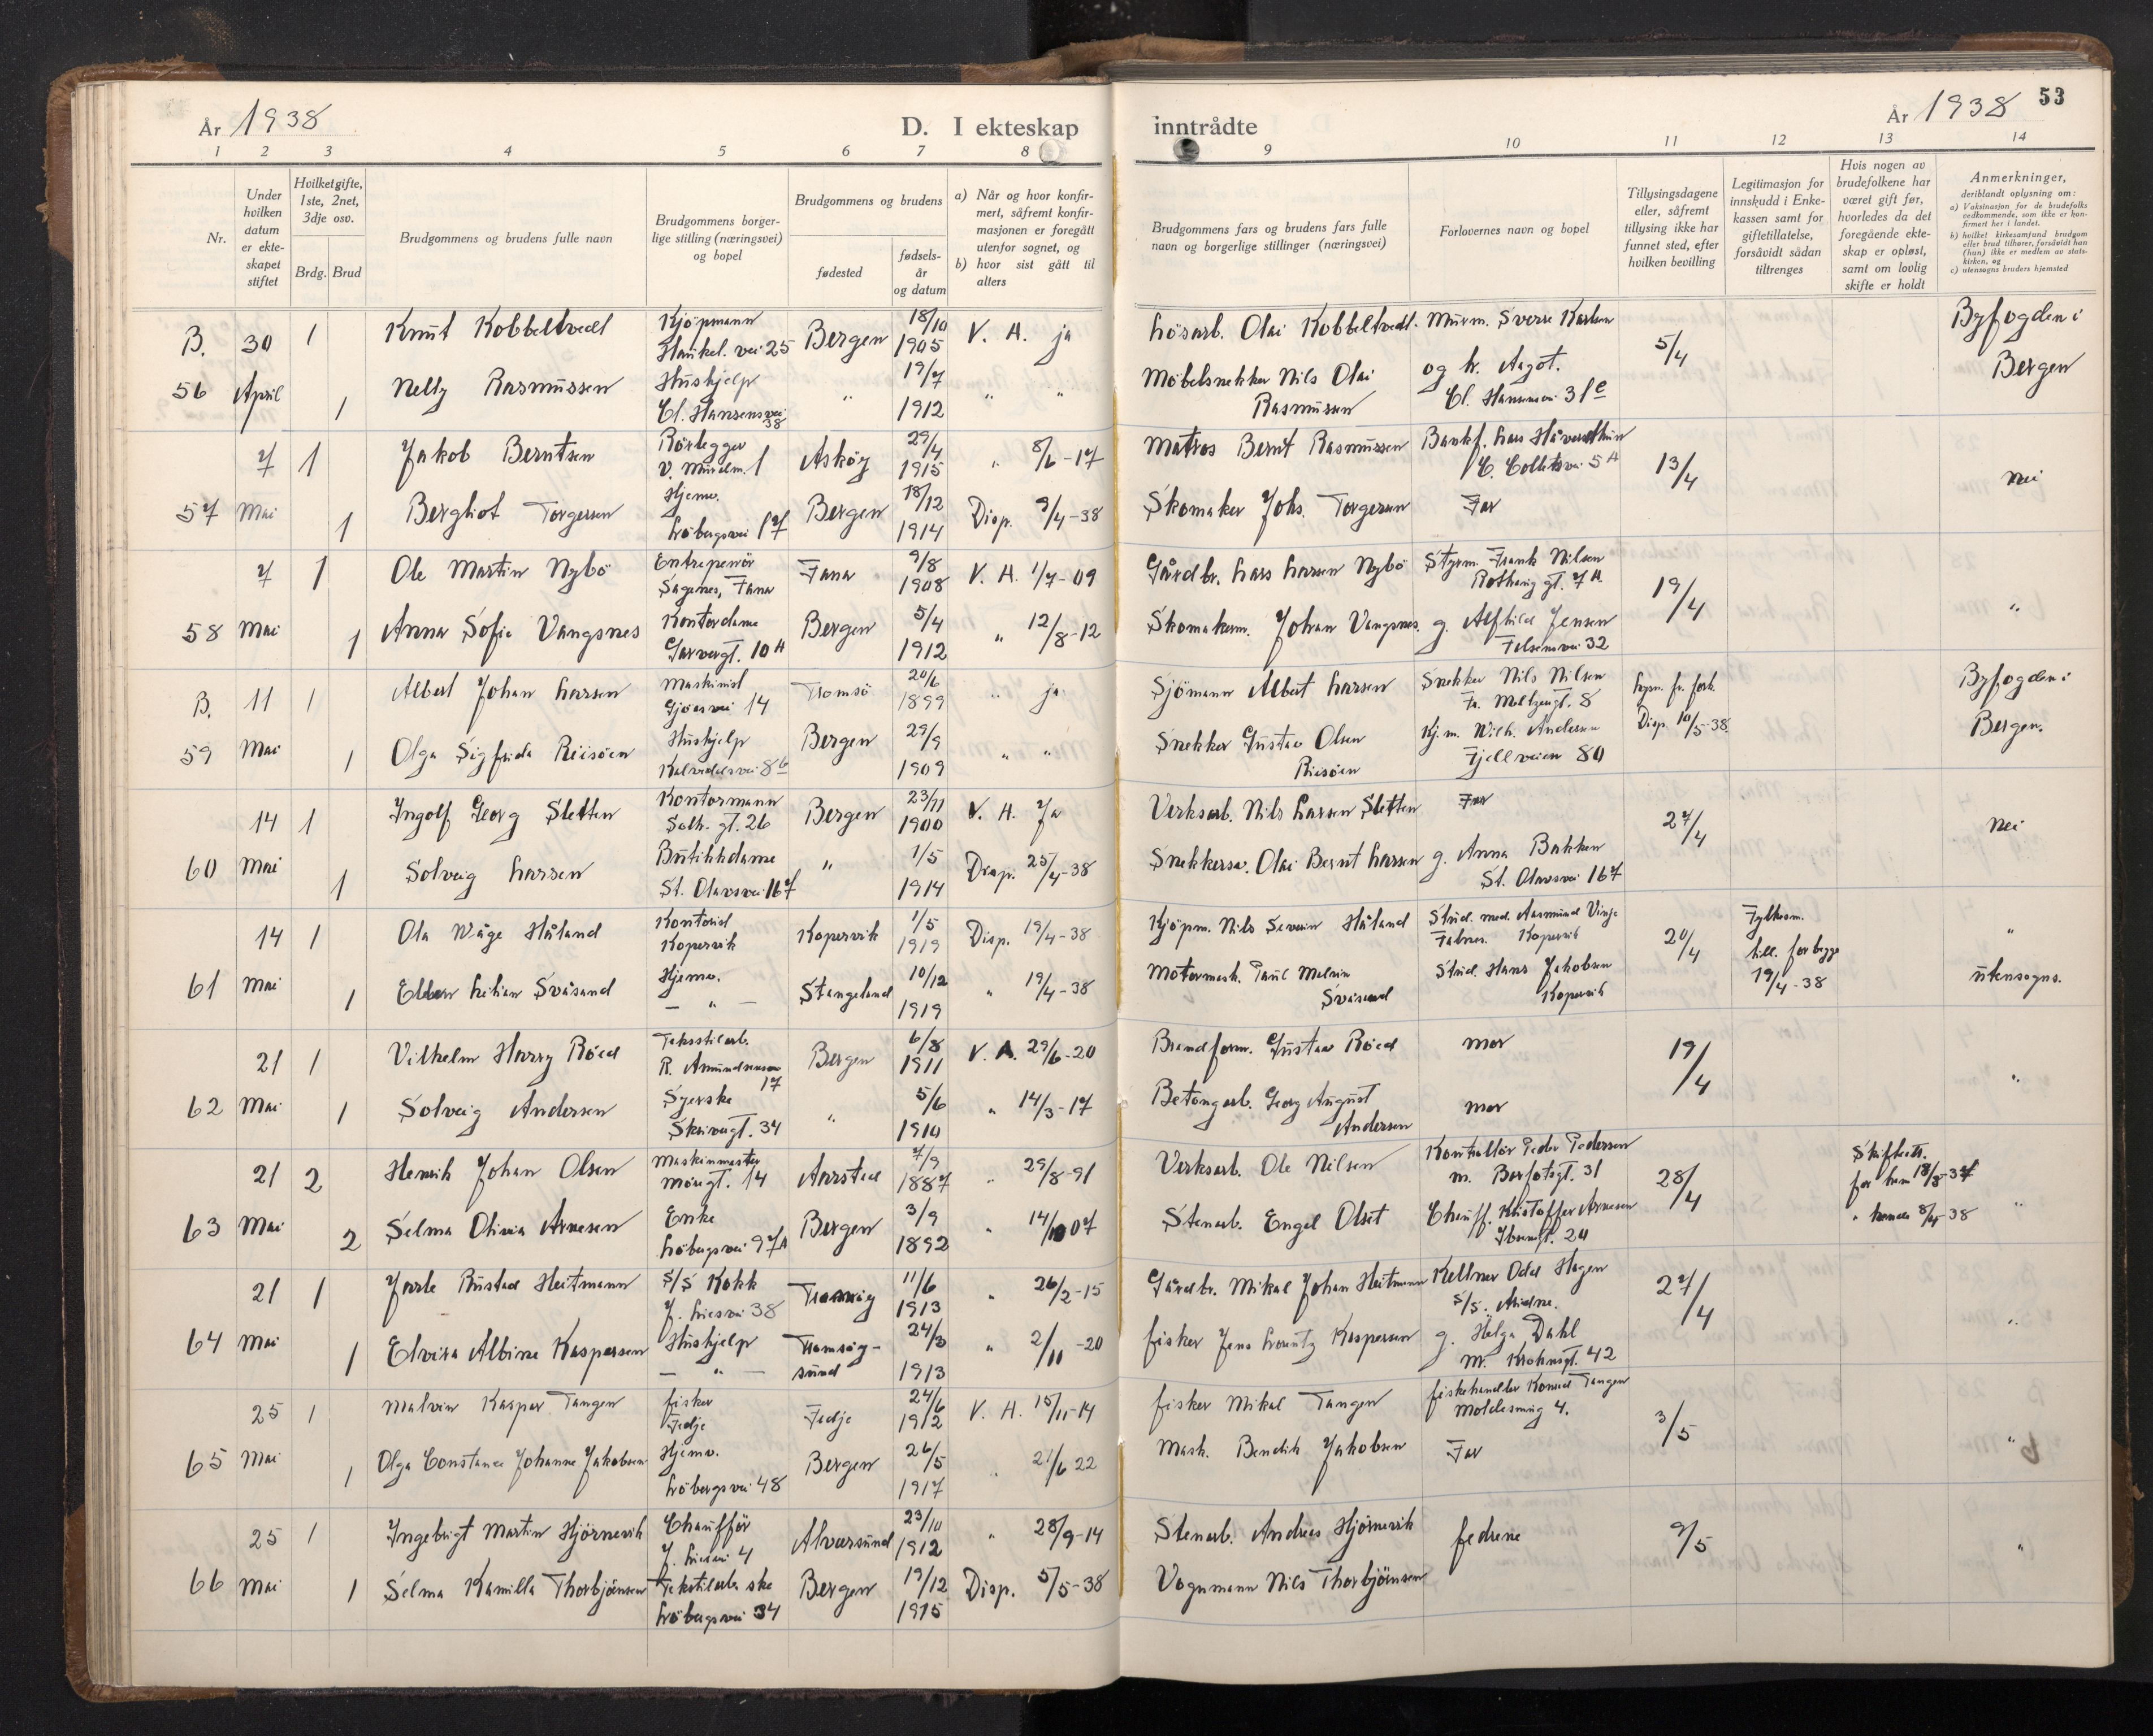 År 1938
D. I ekteskap
inntrådte
År 1938
53
1 2 3 4 5 6 7 8 9 10 11 12 13 14
Nr.
Under hvilken datum er ekteskapet stiftet
Hvilket gifte, 1ste, 2net, 3dje osv.
Brdg. Brud
Brudgommens og brudens fulle navn
Brudgommens borgerlige stilling (næringsvei) og bopel
Brudgommens og brudens
fødested
fødselsår og datum
a) Når og hvor konfirmert, såfremt konfirmasjonen er foregått utenfor sognet, og
b) hvor sist gått til alters
Brudgommens fars og brudens fars fulle navn og borgerlige stillinger (næringsvei)
Forlovernes navn og bopel
Tillysingsdagene eller, såfremt tillysing ikke har funnet sted, efter hvilken bevilling
Legitimasjon for innskudd i Enkekassen samt for giftetillatelse, forsåvidt sådan tiltrenges
Hvis nogen av brudefolkene har været gift før, hvorledes da det foregående ekteskap er opløst, samt om lovlig skifte er holdt
Anmerkninger,
deriblandt oplysning om:
a) Vaksinasjon for de brudefolks vedkommende, som ikke er konfirmert her i landet.
b) hvilket kirkesamfund brudgom eller brud tilhører, forsåvidt han (hun) ikke er medlem av statskirken, og
c) utensogns bruders hjemsted
B. 30 1 Knut Kobbeltvedt Kjöpmann Haukel. vei 25 Bergen 18/10 1905 V. A. ja Lösarb. Olai Kobbeltvedt. Murm. Sverre Karlsen 5/4 Byfogden i
56 April 1 Nelly Rasmussen Hushjelp Cl. Hansensvei 38 " 19/7 1912 " " Möbelsnekker Nils Olai Rasmussen og fr. Aagot. Cl. Hansensvei 31c Bergen
7 1 Jakob Berntsen Rörlegger V. Murelm. 1 Asköy 29/4 1915 " 8/6-17 Matros Bernt Rasmussen Bankf. Lars Håvardthun C. Collettsvei 5A 13/4
57 Mai 1 Bergliot Torgersen Hjemv. Löbergsvei 17 Bergen 18/12 1914 Disp. 9/4-38 Skomaker Johs. Torgersen Far nei
7 1 Ole Martin Nybö Entrepenör Sagenes, Fana Fana 9/8 1908 V. A. 1/7-09 Gårdbr. Lars Larsen Nybö Styrm. Frank Nilsen gt. 7A 19/4
58 Mai 1 Anna Sofie Vangsnes Kontordame Garvergt. 10A Bergen 5/4 1912 " 12/8-12 Skomakerm. Johan Vangsnes. g. Alfhild Jensen 32 "
B. 11 1 Albert Johan Larsen Maskinist Gjöesvei 14 Tromsö 20/6 1899 " ja Sjömann Albert Larsen Snekker Nils Nilsen Fr. Meltzersgt. 8 Lysn. fr. fork. Byfogden i
59 Mai 1 Olga Sigfrida Riisöen Hushjelp Kalvedalsvei 86 Bergen 29/9 1909 " " Snekker Gustav Olsen Riisöen Kj.m. Wilh. Andersen Fjellveien 80 Disp. 10/5-38 Bergen.
14 1 Ingolf Georg Sletten Kontormann Solh. gt. 26 Bergen 23/11 1900 V. A. Ja Verksarb. Nils Larsen Sletten Far 27/4
60 Mai 1 Solveig Larsen Butikkdame St. Olavsvei 167 " 1/5 1914 Disp. 25/4-38 Snekkersv. Olai Bernt Larsen g. Anna Bakken St. Olavsvei 167 nei
14 1 Ola Wåge Håland Kontorist Kopervik Kopervik 1/5 1919 Disp. 19/4-38 Kjöpm. Nils Severin Håland Stud. med. Aasmund Vinje Kopervik 20/4 Fylkesm. till. for begge 19/4-38 "
61 Mai 1 Ellen Lilian Svåsand Hjemv. — " — Stangeland 10/12 1919 " 19/4-38 Motormask. Paul Svåsand Stud. Hans Jakobsen Kopervik utensogns.
21 1 Vilhelm Harry Röed Tekstilarb. R. Amundsensv. 17 Bergen 6/8 1911 V. A. 29/6-20 Brandform. Gustav Röed mor 19/4
62 Mai 1 Solveig Andersen Syerske Skivengt. 34 " 5/6 1910 " 14/3-17 Betongarb. Georg August Andersen mor "
21 2 Henrik Johan Olsen Maskinmester Möregt. 14 Aarstad 7/9 1887 " 29/8-91 Verksarb. Ole Nilsen Kontrollör Peder Pedersen M. Barfotsgt. 31 28/4 Skifteatt. for ham 18/8-37
63 Mai 2 Selma Olivia Arnesen Enke Löbergsvei 97A Bergen 3/9 1892 " 14/10 07 Stenarb. Engel Olset Chauff. Kristoffer Arnesen Ibsensgt. 20 " hende 8/4-38 "
21 1 Jarle Rustad Heitmann S/S Kokk J. Liesvei 38 11/6 1913 " 26/2-15 Gårdbr. Mikal Johan Heitmann Kellner Odd Hagen S/S. Ariadne. 27/4
64 Mai 1 Elvira Albine Kaspersen Hushjelp — " — Tromsöysund 24/3 1913 " 2/11-20 fisker Jens Lorentz Kaspersen g. Helga Dahl M. Krohnsgt. 42 "
25 1 Malvin Kasper Tangen fisker Fedje Fedje 24/6 1912 V. A. 15/11-14 fisker Mikal Tangen fiskehandler Konrad Tangen Moldesmug 4. 3/5
65 Mai 1 Olga Constance Johanne Jakobsen Hjemv. Löbergsvei 48 Bergen 26/5 1917 " 21/6 22 Mask. Bendik Jakobsen Far "
25 1 Ingebrigt Martin Hjörnevik Chaufför J. Liesvei 4 Alversund 23/10 1912 " 28/9-14 Stenarb. Andreas Hjörnevik fedrene 9/5 "
66 Mai 1 Selma Kamilla Thorbjörnsen Tekstilarb. ske Löbergsvei 34 Bergen 19/12 1915 Disp. 5/5-38 Vognmann Nils Thorbjörnsen